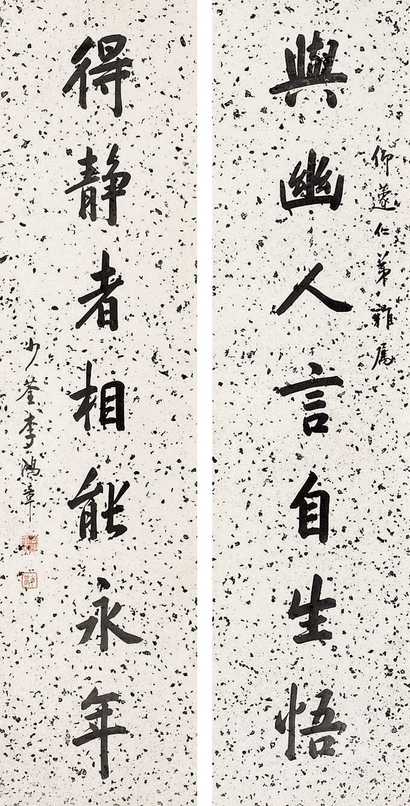 與幽人言自生悟
仰蘧仁弟雅屬
得靜者相能永年
少荃李鴻章